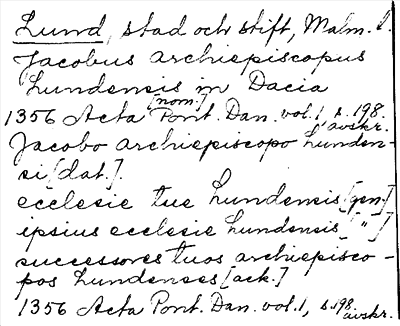 Lund, stad och stift, Malm. l.
Jacobus archiepiscopus
lundensis in Dacia
[nom.]
1356 Acta Pont. Dan. vol. 1, s. 198.
avskr.
Jacobo archiepiscopo lunden-
si [dat.].
ecclesie tue lundensis [gen.]
ipsius ecclesie lundensis [ " ]
successores tuos archiepisco-
pos lundenses [ack.]
1356 Acta Pont. Dan. vol. 1, s. 198
avskr.